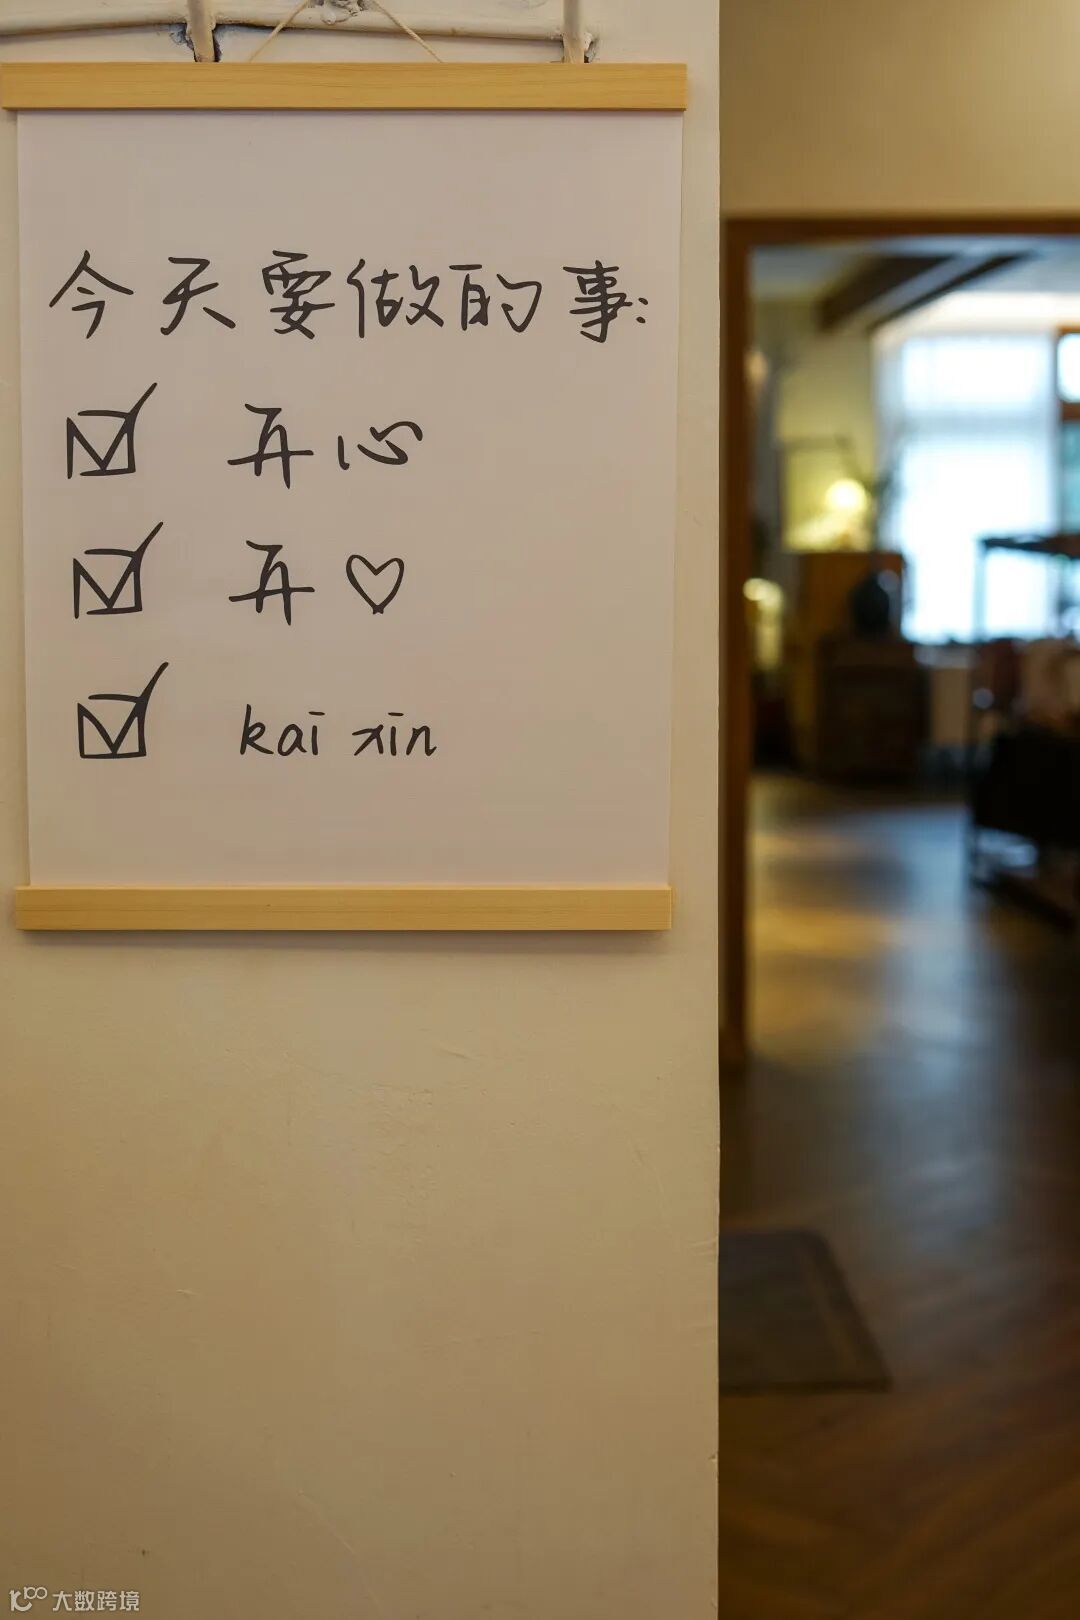 今天要做的事:
开心
开♡
kāi xīn
大数跨境